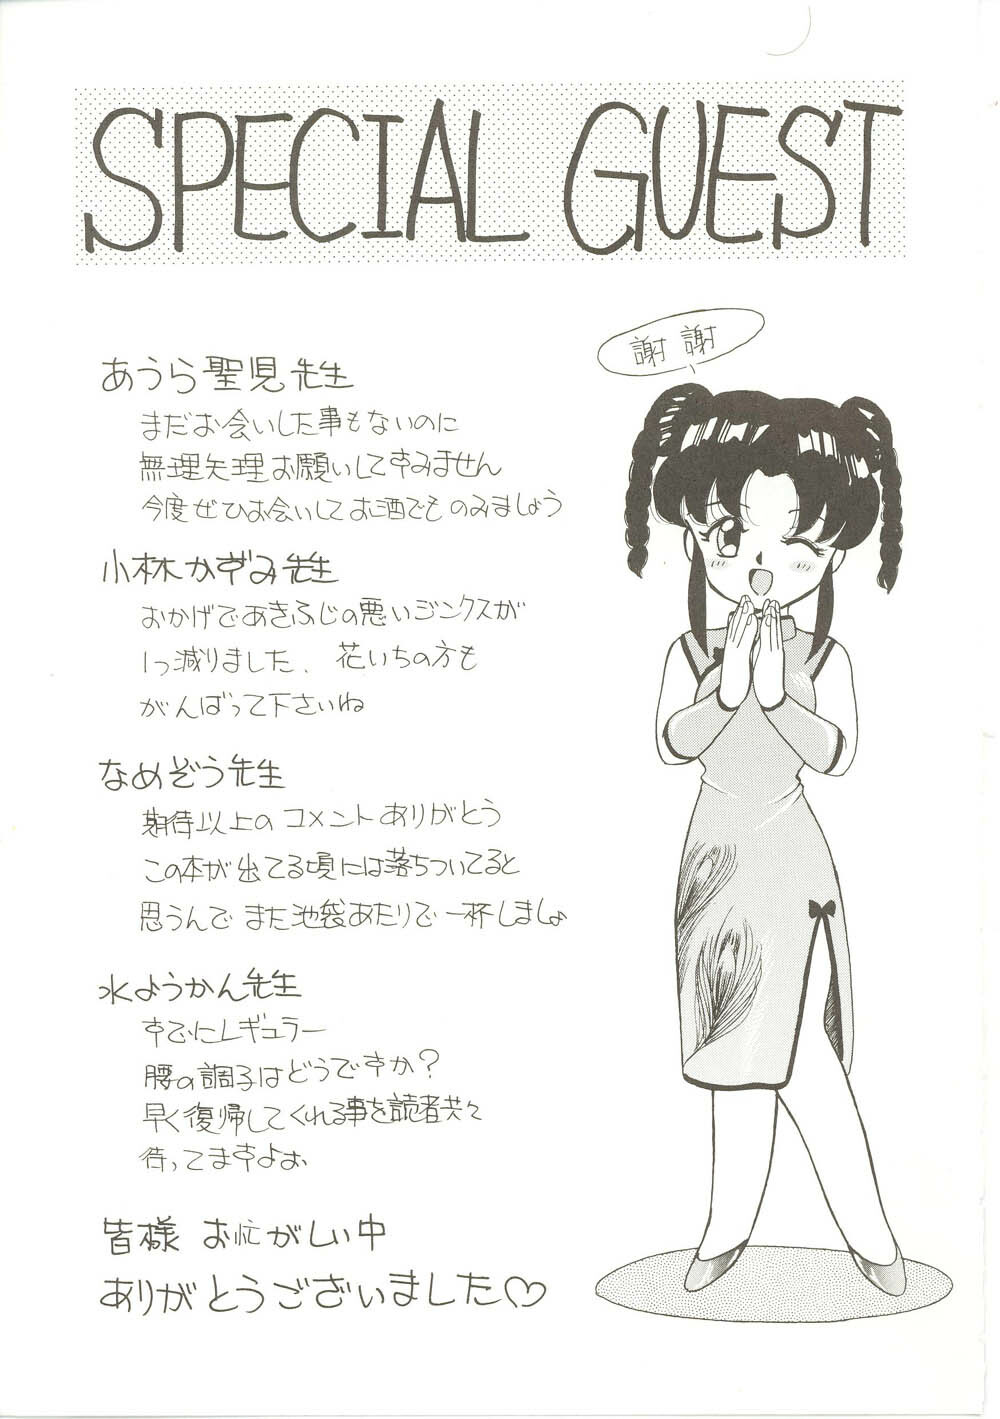 SPECIAL GUEST
謝謝
あうら聖児先生
まだお会いした事もないのに
無理矢理お願いしてすみません
今度ぜひお会いしてお酒でものみましょう
小林かずみ先生
おかげであきふじの悪いジンクスが
1つ減りました、花いちの方も
がんばって下さいね
なめぞう先生
期待以上のコメントありがとう
この本が出てる頃には落ちついてると
思うんでまた池袋あたりで一杯しましょ
水ようかん先生
すでにレギュラー
腰の調子はどうですか?
早く復帰してくれる事を読者共々
待ってますよぉ
皆様 お忙がしい中
ありがとうございました♡